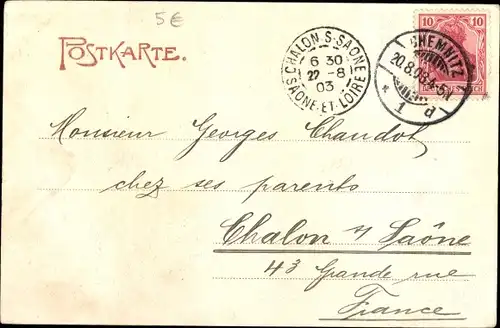 5€
POSTKARTE.
CHALON-S-SAÔNE
6 30
22 -8
03
SAÔNE-ET-LOIRE
10 10
CHEMNITZ
20.8.03.4-5N.
* 1 d
Monsieur Georges Chandot
chez ses parents
Chalon s/ Saône
43 Grande rue
France